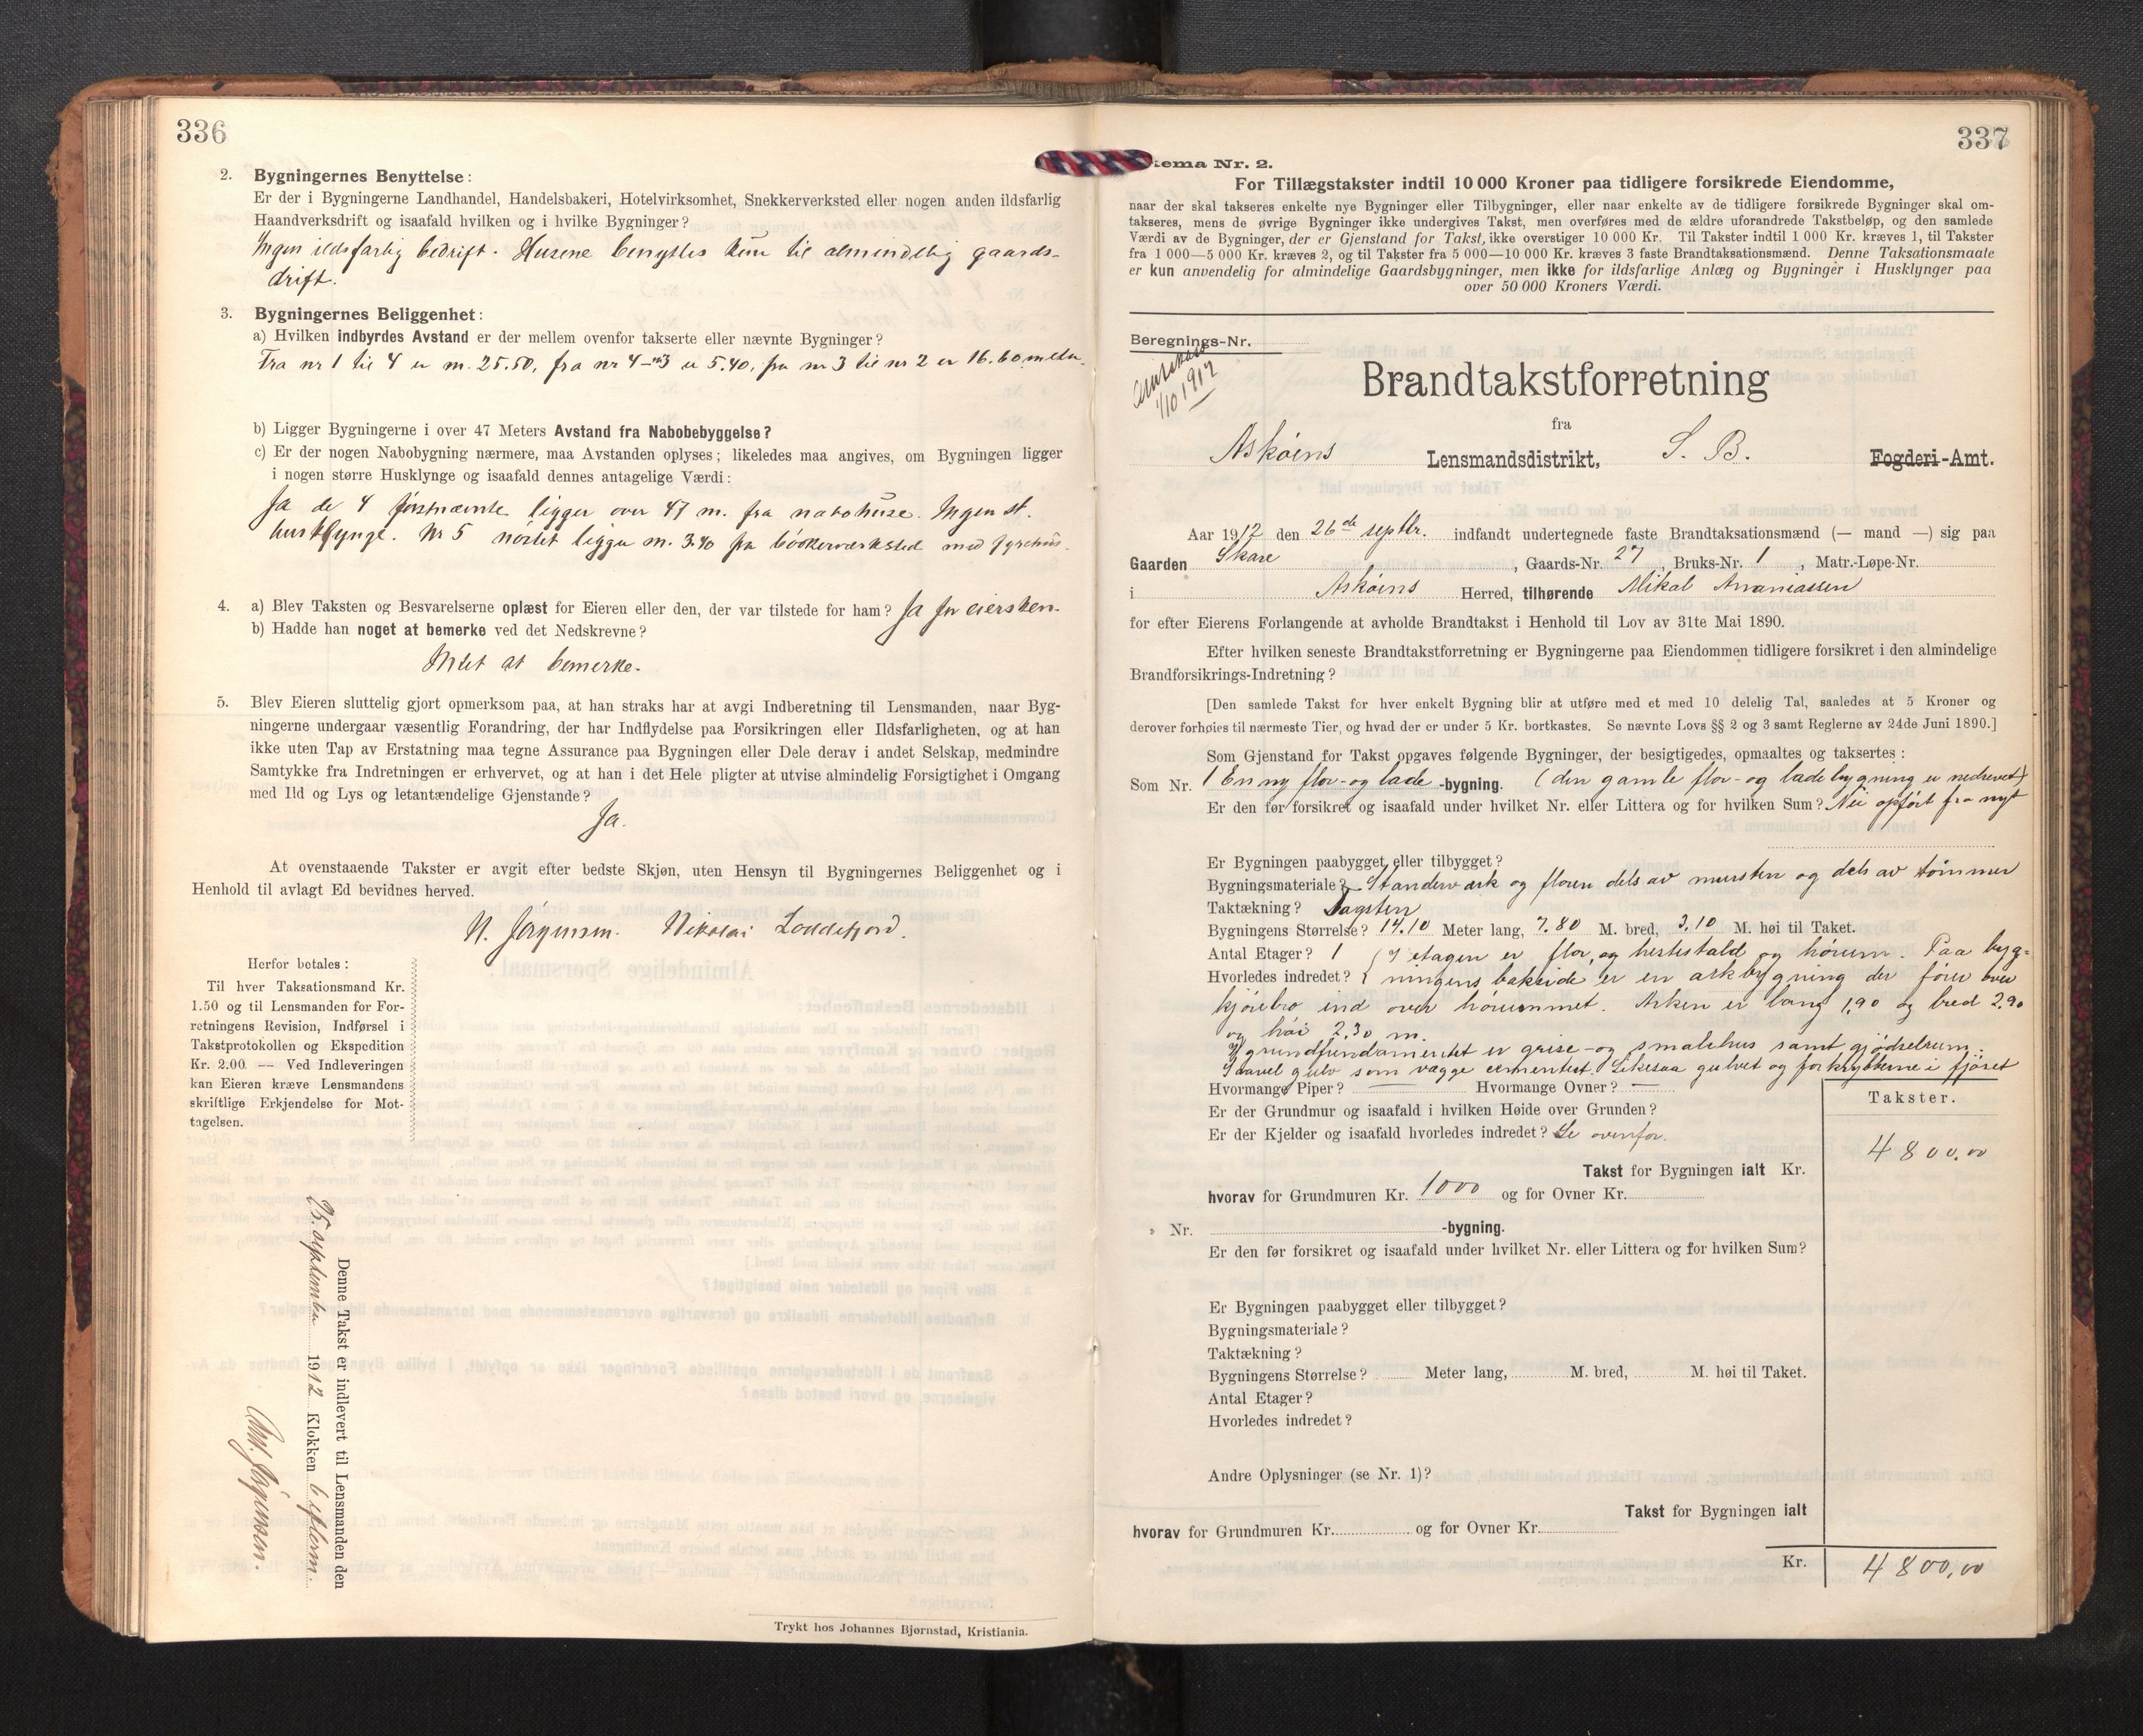 336
2. Bygningernes Benyttelse:
Er der i Bygningerne Landhandel, Handelsbakeri, Hotelvirksomhet, Snekkerverksted eller nogen anden ildsfarlig
Haandverksdrift og isaafald hvilken og i hvilke Bygninger?
Ingen ildsfarlig bedrift. Husene benyttes kun til almindelig gaards-
drift.
3. Bygningernes Beliggenhet:
a) Hvilken indbyrdes Avstand er der mellem ovenfor takserte eller nævnte Bygninger?
Fra nr 1 til 4 er m. 25.50, fra nr 4 - nr 3 er 5.40, fra nr 3 til nr 2 er 16.60 meter.
b) Ligger Bygningerne i over 47 Meters Avstand fra Nabobebyggelse?
c) Er der nogen Nabobygning nærmere, maa Avstanden oplyses; likeledes maa angives, om Bygningen ligger
i nogen større Husklynge og isaafald dennes antagelige Værdi:
Ja de 4 førstnævnte ligger over 47 m. fra nabohuse. Ingen st.
husklynge. Nr 5 nöstet ligger m. 3.40 fra bökerværksted med fyrehus.
4. a) Blev Taksten og Besvarelserne oplæst for Eieren eller den, der var tilstede for ham? Ja for eiersken.
b) Hadde han noget at bemerke ved det Nedskrevne?
Intet at bemerke.
5. Blev Eieren sluttelig gjort opmerksom paa, at han straks har at avgi Indberetning til Lensmanden, naar Byg-
ningerne undergaar væsentlig Forandring, der har Indflydelse paa Forsikringen eller Ildsfarligheten, og at han
ikke uten Tap av Erstatning maa tegne Assurance paa Bygningen eller Dele derav i andet Selskap, medmindre
Samtykke fra Indretningen er erhvervet, og at han i det Hele pligter at utvise almindelig Forsigtighet i Omgang
med Ild og Lys og letantændelige Gjenstande?
Ja.
At ovenstaaende Takster er avgit efter bedste Skjøn, uten Hensyn til Bygningernes Beliggenhet og i
Henhold til avlagt Ed bevidnes herved.
N. Jörgensen. Nikolai Loddefjord.
Herfor betales:
Til hver Taksationsmand Kr.
1.50 og til Lensmanden for For-
retningens Revision, Indførsel i
Takstprotokollen og Ekspedition
Kr. 2.00. — Ved Indleveringen
kan Eieren kræve Lensmandens
skriftlige Erkjendelse for Mot-
tagelsen.
Denne Takst er indlevert til Lensmanden den
25. september 1912 Klokken 6 efterm.
M. Jörgensen.
Trykt hos Johannes Bjørnstad, Kristiania.
337
ema Nr. 2.
For Tillægstakster indtil 10 000 Kroner paa tidligere forsikrede Eiendomme,
naar der skal takseres enkelte nye Bygninger eller Tilbygninger, eller naar enkelte av de tidligere forsikrede Bygninger skal om-
takseres, mens de øvrige Bygninger ikke undergives Takst, men overføres med de ældre uforandrede Takstbeløp, og den samlede
Værdi av de Bygninger, der er Gjenstand for Takst, ikke overstiger 10 000 Kr. Til Takster indtil 1 000 Kr. kræves 1, til Takster
fra 1 000—5 000 Kr. kræves 2, og til Takster fra 5 000—10 000 Kr. kræves 3 faste Brandtaksationsmænd. Denne Taksationsmaate
er kun anvendelig for almindelige Gaardsbygninger, men ikke for ildsfarlige Anlæg og Bygninger i Husklynger paa
over 50 000 Kroners Værdi.
Beregnings-Nr.
1/10 1912
Brandtakstforretning
fra
Askøens Lensmandsdistrikt, S. B. Fogderi-Amt.
Aar 1912 den 26de septbr. indfandt undertegnede faste Brandtaksationsmænd (— mand —) sig paa
Gaarden Skare, Gaards-Nr. 27, Bruks-Nr. 1, Matr.-Løpe-Nr.
i Askøens Herred, tilhørende Mikal Ananiassen
for efter Eierens Forlangende at avholde Brandtakst i Henhold til Lov av 31te Mai 1890.
Efter hvilken seneste Brandtakstforretning er Bygningerne paa Eiendommen tidligere forsikret i den almindelige
Brandforsikrings-Indretning?
[Den samlede Takst for hver enkelt Bygning blir at utføre med et med 10 delelig Tal, saaledes at 5 Kroner og
derover forhøies til nærmeste Tier, og hvad der er under 5 Kr. bortkastes. Se nævnte Lovs §§ 2 og 3 samt Reglerne av 24de Juni 1890.]
Som Gjenstand for Takst opgaves følgende Bygninger, der besigtigedes, opmaaltes og taksertes:
Som Nr. 1 En ny flor- og lade-bygning. (den gamle flor- og ladebygning er nedrevet)
Er den før forsikret og isaafald under hvilket Nr. eller Littera og for hvilken Sum? Nei opfört fra nyt
Er Bygningen paabygget eller tilbygget?
Bygningsmateriale? Standerværk og floren dels av mursten og dels av tömmer
Taktækning? Tagsten
Bygningens Størrelse? 14.10 Meter lang, 7.80 M. bred, 3.10 M. høi til Taket.
Antal Etager? 1 (I etagen er flor, og hestestald og hörum. Paa byg-
Hvorledes indredet? ningens bakside er en arkbygning der förer over
kjörebro ind over hörummet. Arken er lang 1,90 og bred 2.90
og höi 2.30 m.
I grundfundamentet er grise- og smalehus samt gjödselrum.
Saavel gulv som vægge cementert. Likesaa gulvet og forkrybberne i fjöset
Hvormange Piper? — Hvormange Ovner? —
Er der Grundmur og isaafald i hvilken Høide over Grunden?
Er der Kjelder og isaafald hvorledes indredet? Se ovenfor.
Takster.
Takst for Bygningen ialt Kr. 4800,00
hvorav for Grundmuren Kr. 1000 og for Ovner Kr.
» Nr. -bygning.
Er den før forsikret og isaafald under hvilket Nr. eller Littera og for hvilken Sum?
Er Bygningen paabygget eller tilbygget?
Bygningsmateriale?
Taktækning?
Bygningens Størrelse? Meter lang, M. bred, M. høi til Taket.
Antal Etager?
Hvorledes indredet?
Andre Oplysninger (se Nr. 1)?
Takst for Bygningen ialt
hvorav for Grundmuren Kr. og for Ovner Kr.
Kr. 4800,00